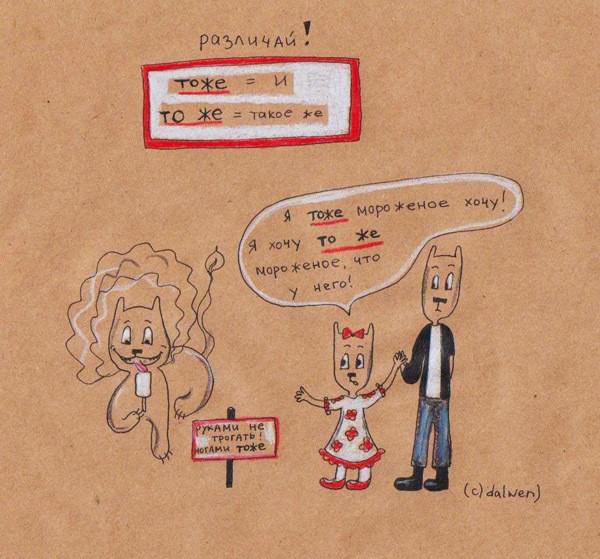 различАй!
тоже = и
то же = такое же
Я тоже мороженое хочу!
Я хочу то же
мороженое, что
у него!
руками не
трогать!
ногами тоже
(c) dalwen)